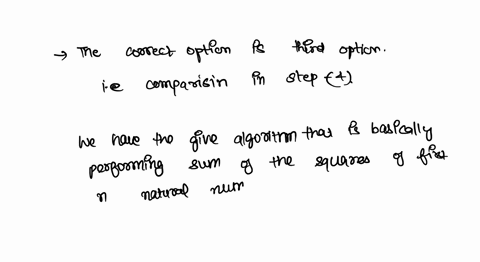 → The correct option is third option.
i.e comparisin in step (4)
We have the give algorithm that is basically
performing sum of the squares of first
n natural num